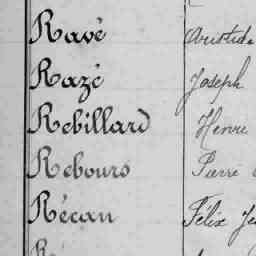 Ravé Aristide
Razé Joseph
Rebillard Henri
Rebours Pierre
Récan Félix